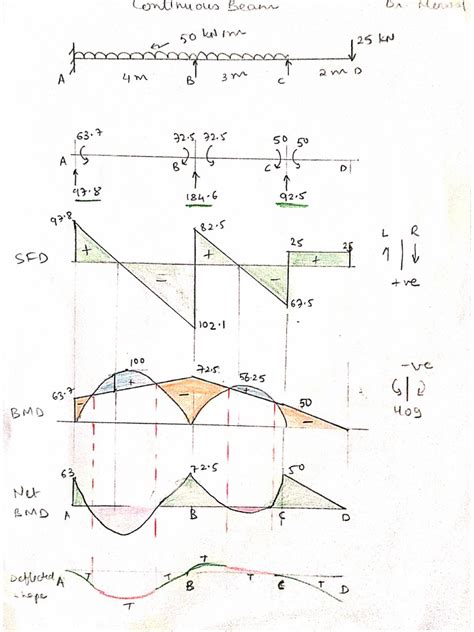 Continuous Beam
50 kN/m
25 kN
A 4m B 3m C 2m D
63.7 72.5 72.5 50 50
A B C D
97.8 184.6 92.5
97.8 82.5
25 25
L R
SFD + - + - +
+ve
67.5
102.1
100
-ve
72.5 56.25
63.7 + + 50
BMD - - -
Hog
63 72.5 50
Net
BMD A B C D
T
Deflected A T T B T C T D
shape